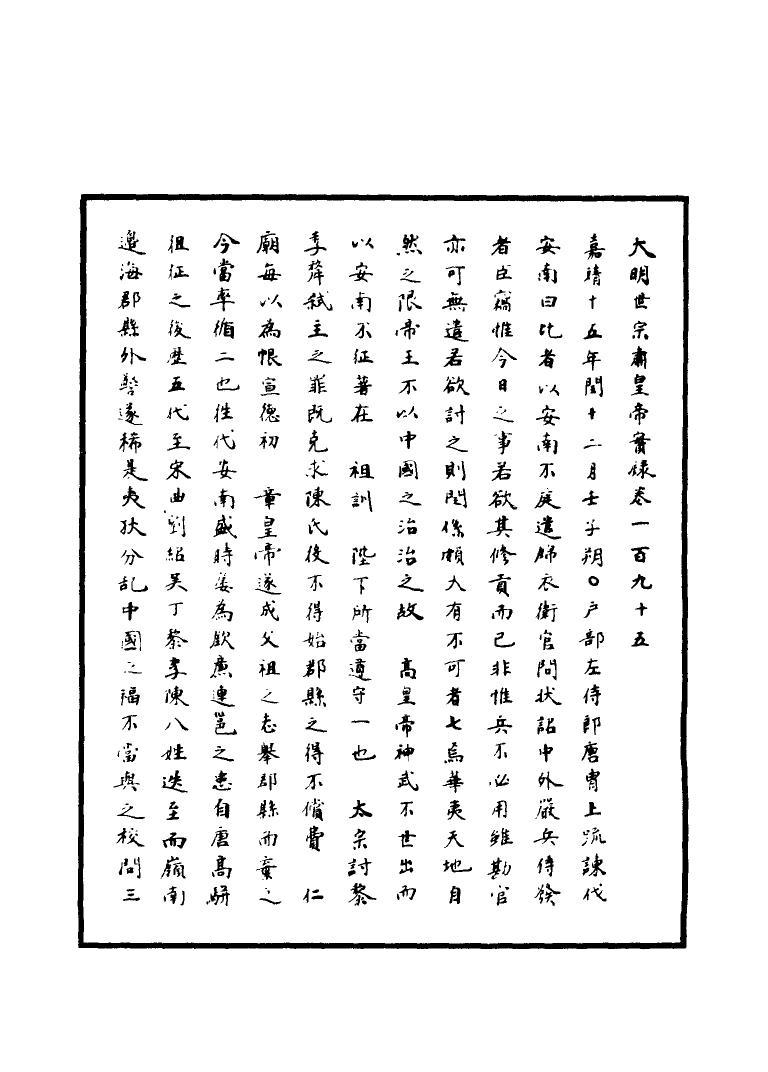 大明世宗肅皇帝實録卷一百九十五
嘉靖十五年閏十二月壬子朔○户部左侍郎唐冑上疏諫伐
安南曰比者以安南不庭遣錦衣衛官問状詔中外嚴兵待發
者臣竊惟今日之事若欲其修貢而已非惟兵不必用雖勘官
亦可無遣若欲討之則関係頗大有不可者七焉華夷天地自
然之限帝王不以中國之治治之故　高皇帝神武不世出而
以安南不征著在　祖訓　陛下所當遵守一也　太宗討黎
季犛弑主之罪既克求陳氏後不得始郡縣之得不償費　仁
廟每以為恨宣德初　章皇帝遂成父祖之志舉郡縣而棄之
今當率循二也往代安南盛時姜為欽廉連邕之患自唐高駢
徂征之後歴五代至宋曲劉紹吴丁黎李陳八姓迭至而嶺南
邉海郡縣外警遂稀是夷狄分乱中國之福不當與之校問三